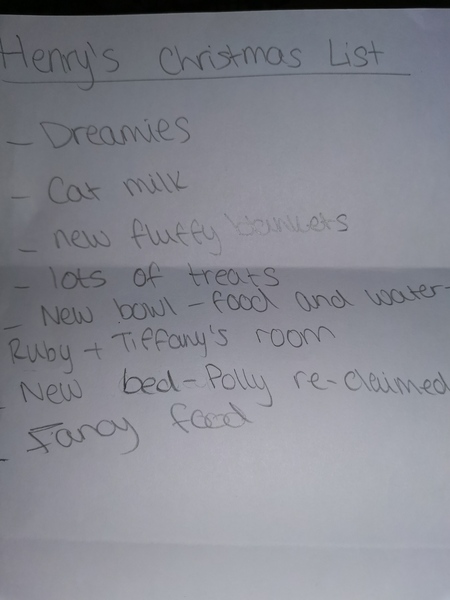 Henry's Christmas List
- Dreamies
- Cat milk
- new fluffy blankets
- lots of treats
- New bowl - food and water -
Ruby + Tiffany's room
- New bed - Polly re-claimed
- Fancy food